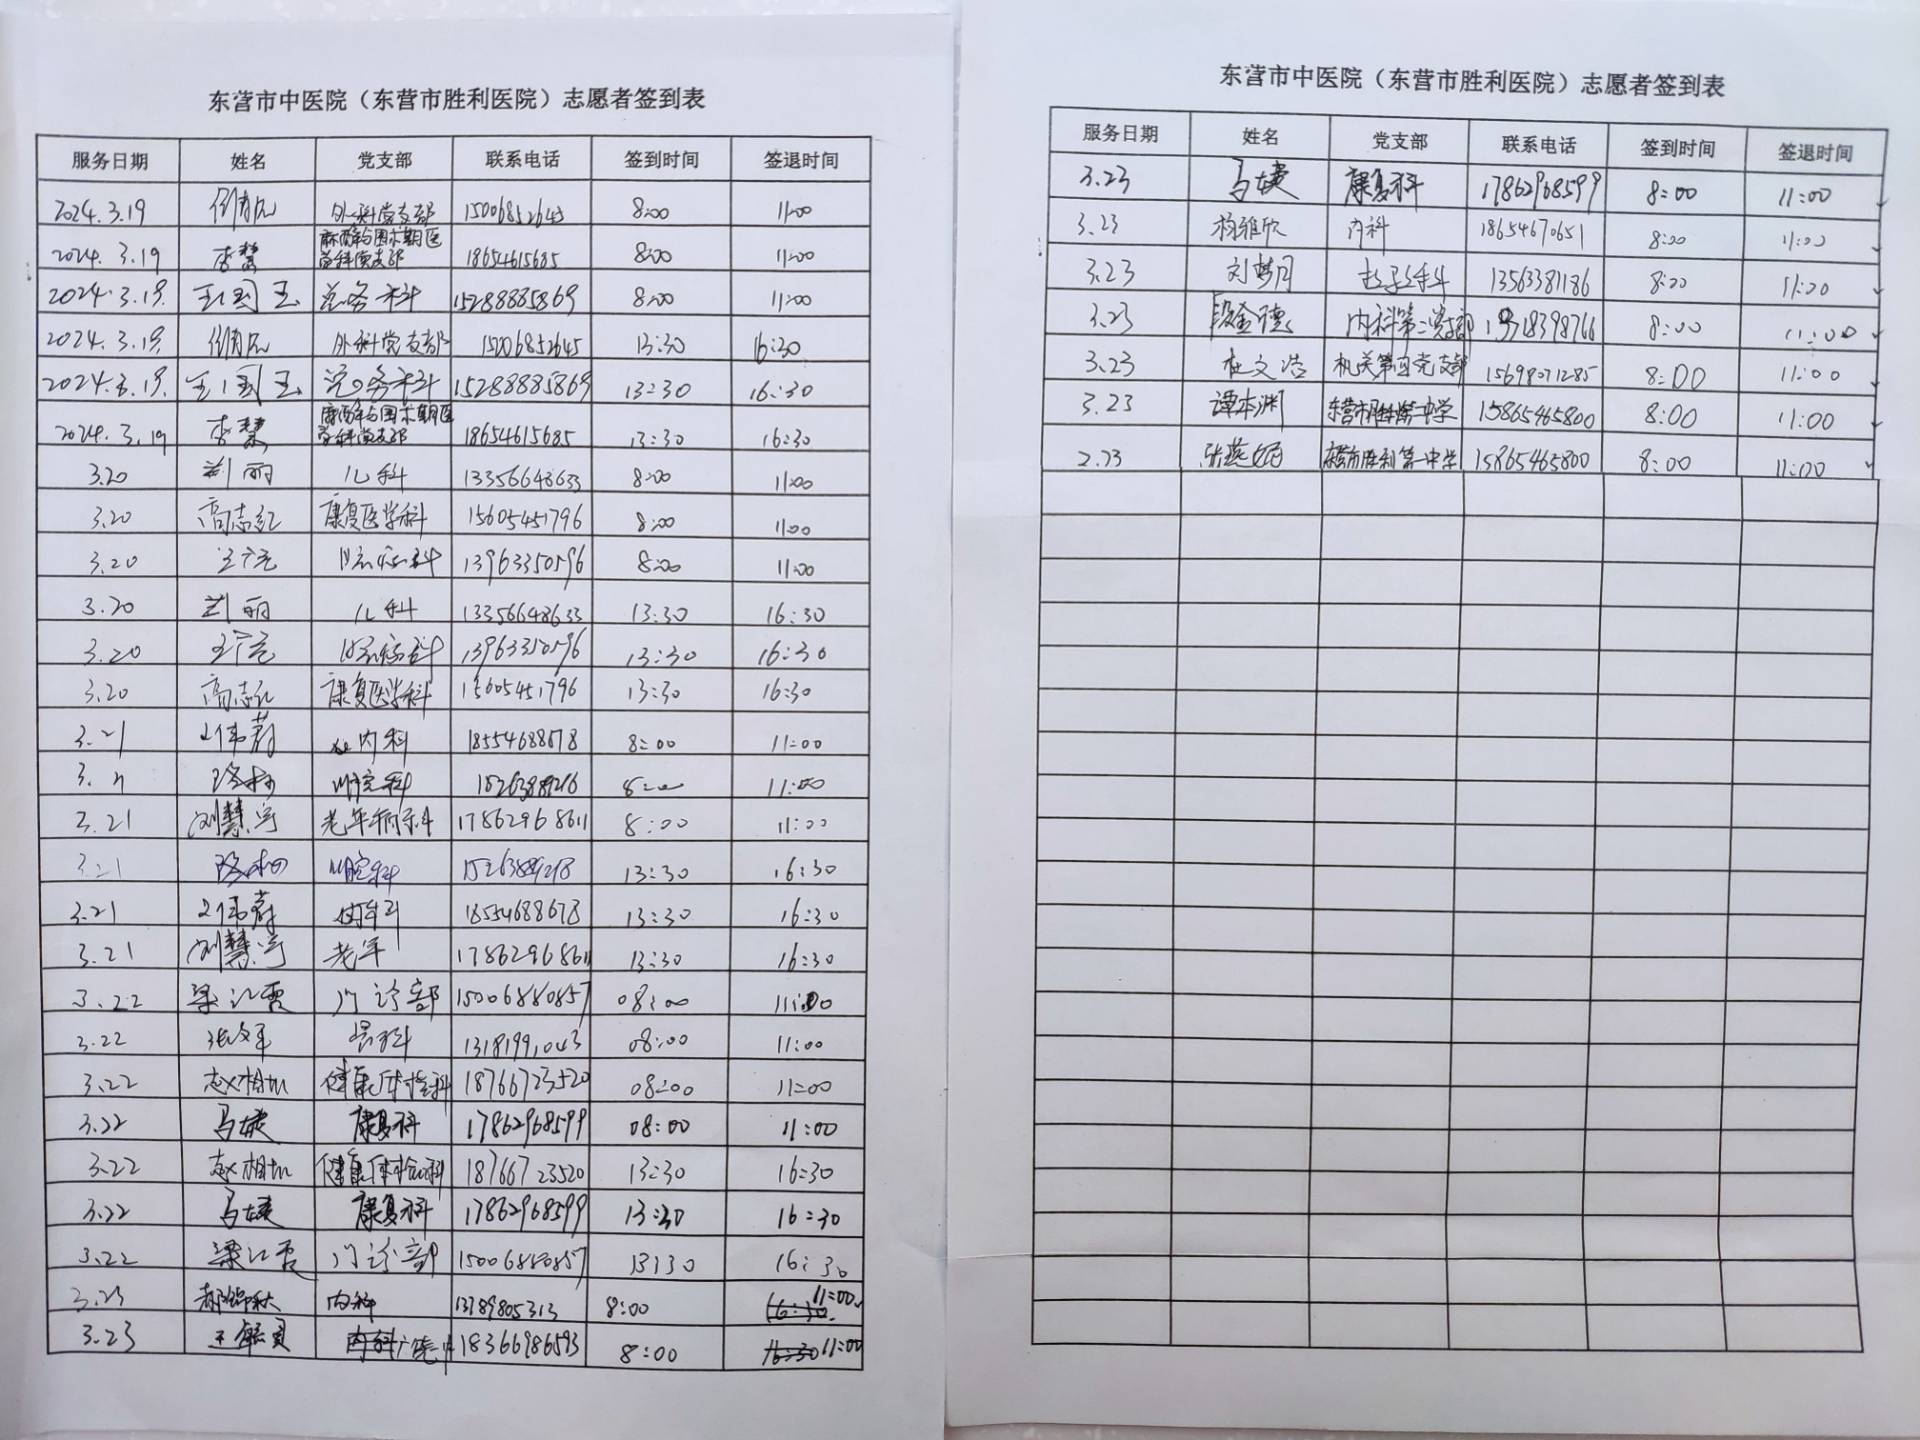 东营市中医院（东营市胜利医院）志愿者签到表
服务日期 姓名 党支部 联系电话 签到时间 签退时间
2024.3.19 外科党支部 15006852645 8:00 11:00
2024.3.19 李慧 麻醉与围术期医学科党支部 18654615685 8:00 11:00
2024.3.19. 王国玉 总务科 15288885869 8:00 11:00
2024.3.19. 外科党支部 15006852645 13:30 16:30
2024.3.19. 王国玉 总务科 15288885869 13:30 16:30
2024.3.19 李慧 麻醉与围术期医学科党支部 18654615685 13:30 16:30
3.20 荆丽 儿科 13356648633 8:00 11:00
3.20 高志红 康复医学科 15605451796 8:00 11:00
3.20 13963350596 8:00 11:00
3.20 荆丽 儿科 13356648633 13:30 16:30
3.20 13963350596 13:30 16:30
3.20 高志红 康复医学科 15605451796 13:30 16:30
3.21 内科 18554688678 8:00 11:00
口腔科 8:00 11:00
3.21 刘慧宇 老年病科 17862968611 8:00 11:00
3.21 口腔科 15263889218 13:30 16:30
3.21 18554688678 13:30 16:30
3.21 刘慧宇 老年 17862968611 13:30 16:30
3.22 梁江霞 门诊部 15006880857 08:00 11:00
3.22 13181991043 08:00 11:00
3.22 健康体检科 18766723520 08:00 11:00
3.22 马婕 康复科 17862968599 08:00 11:00
3.22 健康体检科 18766723520 13:30 16:30
3.22 马婕 康复科 17862968599 13:30 16:30
3.22 梁江霞 门诊部 15006880857 13:30 16:30
3.23 郝锦秋 内科 13789805313 8:00 11:00
3.23 18366986593 8:00 11:00
东营市中医院（东营市胜利医院）志愿者签到表
服务日期 姓名 党支部 联系电话 签到时间 签退时间
3.23 马婕 康复科 17862968599 8:00 11:00
3.23 杨雅欣 内科 18654670651 8:00 11:00
3.23 刘梦月 13563381186 8:00 11:00
3.23 段金德 内科第二党支部 8:00 11:00
3.23 杜文浩 机关第四党支部 15698071285 8:00 11:00
3.23 谭本渊 东营市胜利第一中学 15865465800 8:00 11:00
张燕妮 东营市胜利第一中学 15865465800 8:00 11:00